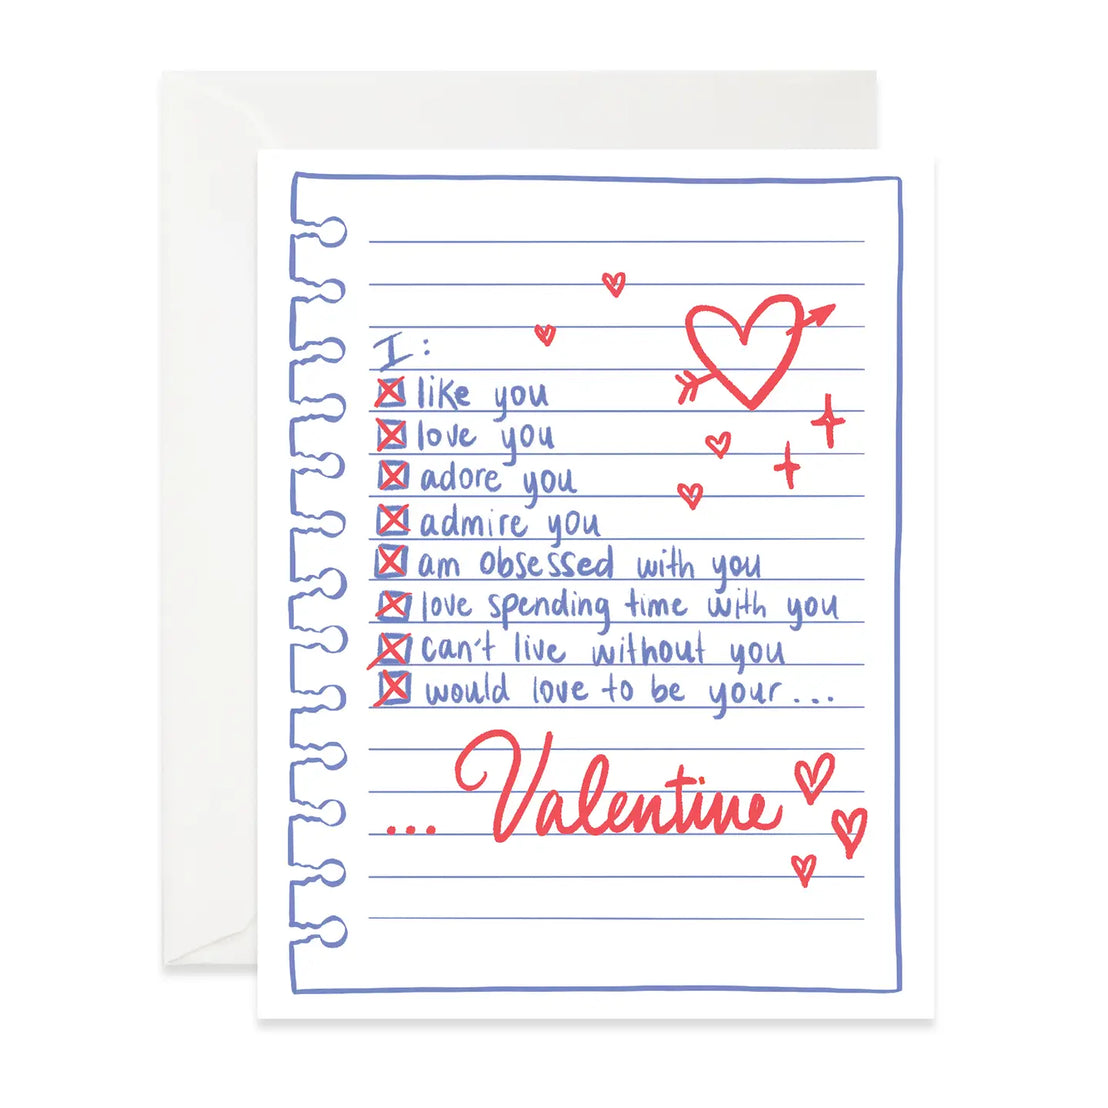 I:
like you
love you
adore you
admire you
am obsessed with you
love spending time with you
can't live without you
would love to be your...
... Valentine